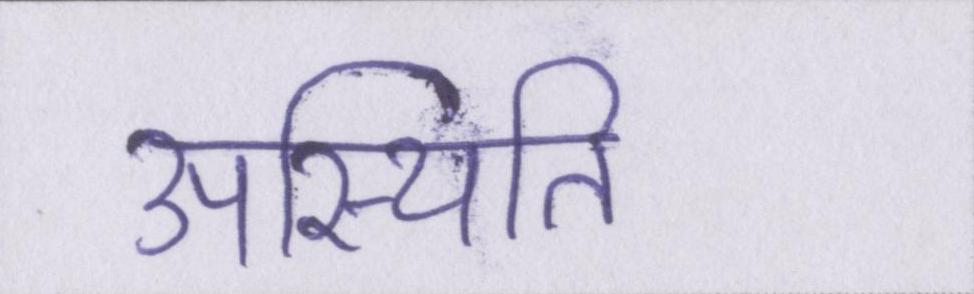 उपस्थिति